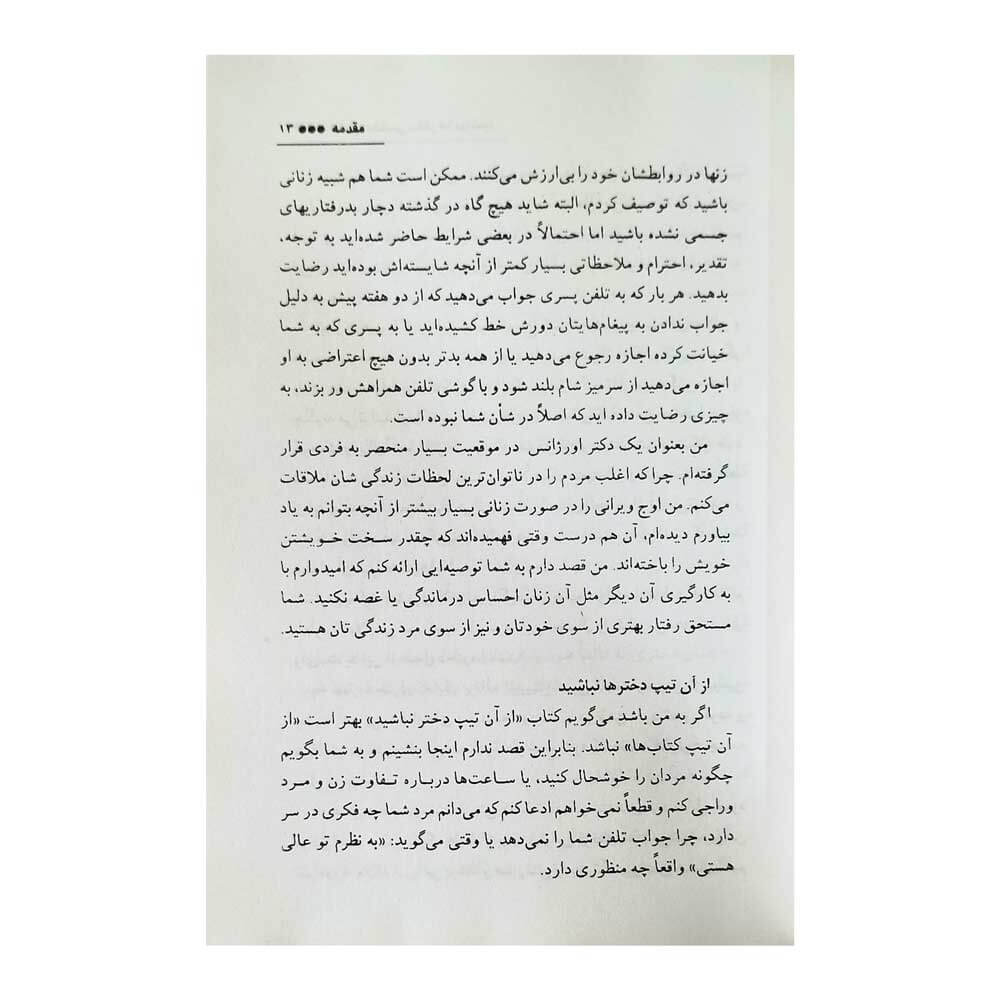 مقدمه ●●● ۱۳
زنها در روابطشان خود را بی‌ارزش می‌کنند. ممکن است شما هم شبیه زنانی
باشید که توصیف کردم، البته شاید هیچ گاه در گذشته دچار بدرفتاریهای
جسمی نشده باشید اما احتمالاً در بعضی شرایط حاضر شده‌اید به توجه،
تقدیر، احترام و ملاحظاتی بسیار کمتر از آنچه شایسته‌اش بوده‌اید رضایت
بدهید. هر بار که به تلفن پسری جواب می‌دهید که از دو هفته پیش به دلیل
جواب ندادن به پیغام‌هایتان دورش خط کشیده‌اید یا به پسری که به شما
خیانت کرده اجازه رجوع می‌دهید یا از همه بدتر بدون هیچ اعتراضی به او
اجازه می‌دهید از سرمیز شام بلند شود و با گوشی تلفن همراهش ور بزند، به
چیزی رضایت داده اید که اصلاً در شأن شما نبوده است.
من بعنوان یک دکتر اورژانس در موقعیت بسیار منحصر به فردی قرار
گرفته‌ام. چراکه اغلب مردم را در ناتوان‌ترین لحظات زندگی شان ملاقات
می‌کنم. من اوج ویرانی را در صورت زنانی بسیار بیشتر از آنچه بتوانم به یاد
بیاورم دیده‌ام، آن هم درست وقتی فهمیده‌اند که چقدر سخت خویشتن
خویش را باخته‌اند. من قصد دارم به شما توصیه‌ایی ارائه کنم که امیدوارم با
به کارگیری آن دیگر مثل آن زنان احساس درماندگی یا غصه نکنید. شما
مستحق رفتار بهتری از سوی خودتان و نیز از سوی مرد زندگی تان هستید.
از آن تیپ دخترها نباشید
اگر به من باشد می‌گویم کتاب «از آن تیپ دختر نباشید» بهتر است «از
آن تیپ کتاب‌ها» نباشد. بنابراین قصد ندارم اینجا بنشینم و به شما بگویم
چگونه مردان را خوشحال کنید، یا ساعت‌ها درباره تفاوت زن و مرد
وراجی کنم و قطعاً نمی‌خواهم ادعا کنم که می‌دانم مرد شما چه فکری در سر
دارد، چرا جواب تلفن شما را نمی‌دهد یا وقتی می‌گوید: «به نظرم تو عالی
هستی» واقعاً چه منظوری دارد.